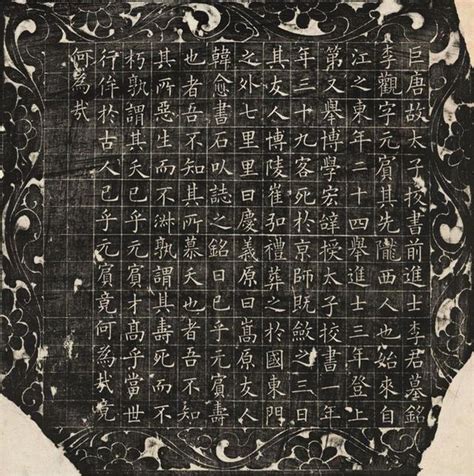 巨唐故太子校書前進士李君墓銘
李觀字元賓其先隴西人也始來自
江之東年二十四舉進士三年登上
第又舉博學宏辭授太子校書一年
年三十九客死於京師既斂之三日
其友人博陵崔弘禮葬之於國東門
之外七里里曰慶義原曰嵩原友人
韓愈書石以誌之銘曰已乎元賓壽
也者吾不知其所慕夭也者吾不知
其所惡生而不淑孰謂其壽死而不
朽孰謂其夭已乎元賓才高乎當世
行侔於古人已乎元賓竟何為哉竟
何為哉